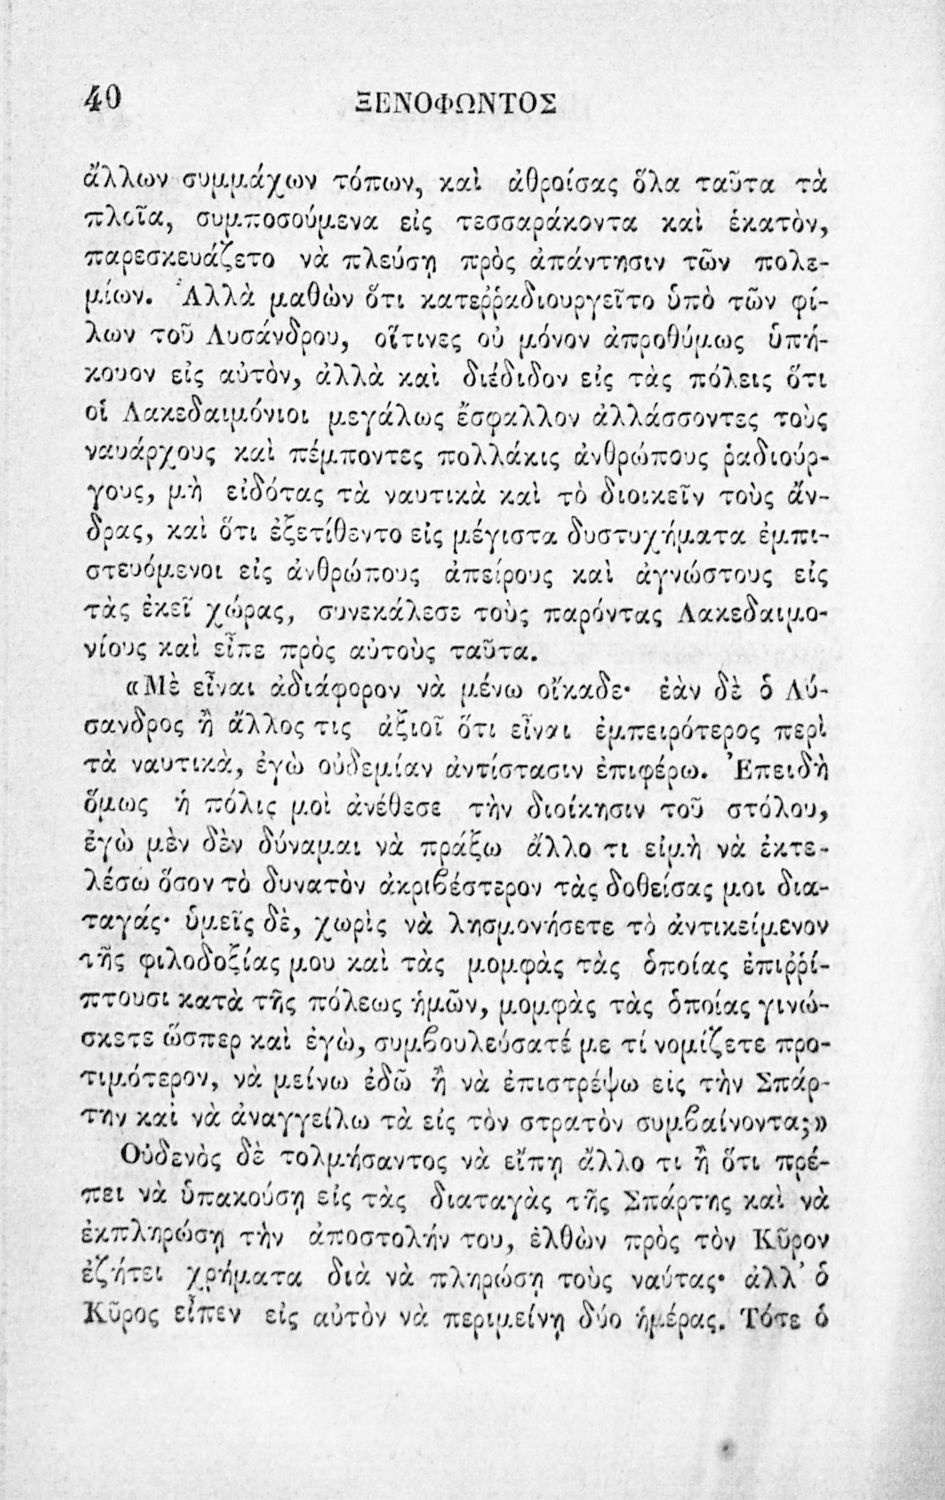 40 ΞΕΝΟΦΩΝΤΟΣ
ἄλλων συμμάχων τόπων, καὶ ἀθροίσας ὅλα ταῦτα τὰ
πλοῖα, συμποσούμενα εἰς τεσσαράκοντα καὶ ἑκατὸν,
παρεσκευάζετο νὰ πλεύσῃ πρὸς ἀπάντησιν τῶν πολε-
μίων. Ἀλλὰ μαθὼν ὅτι κατεῤῥαδιουργεῖτο ὑπὸ τῶν φί-
λων τοῦ Λυσάνδρου, οἵτινες οὐ μόνον ἀπροθύμως ὑπή-
κουον εἰς αὐτὸν, ἀλλὰ καὶ διέδιδον εἰς τὰς πόλεις ὅτι
οἱ Λακεδαιμόνιοι μεγάλως ἔσφαλλον ἀλλάσσοντες τοὺς
ναυάρχους καὶ πέμποντες πολλάκις ἀνθρώπους ῥαδιούρ-
γους, μὴ εἰδότας τὰ ναυτικὰ καὶ τὸ διοικεῖν τοὺς ἄν-
δρας, καὶ ὅτι ἐξετίθεντο εἰς μέγιστα δυστυχήματα ἐμπι-
στευόμενοι εἰς ἀνθρώπους ἀπείρους καὶ ἀγνώστους εἰς
τὰς ἐκεῖ χώρας, συνεκάλεσε τοὺς παρόντας Λακεδαιμο-
νίους καὶ εἶπε πρὸς αὐτοὺς ταῦτα.
«Μὲ εἶναι ἀδιάφορον νὰ μένω οἴκαδε· ἐὰν δὲ ὁ Λύ-
σανδρος ἢ ἄλλος τις ἀξιοῖ ὅτι εἶναι ἐμπειρότερος περὶ
τὰ ναυτικὰ, ἐγὼ οὐδεμίαν ἀντίστασιν ἐπιφέρω. Ἐπειδὴ
ὅμως ἡ πόλις μοὶ ἀνέθεσε τὴν διοίκησιν τοῦ στόλου,
ἐγὼ μὲν δὲν δύναμαι νὰ πράξω ἄλλο τι εἰμὴ νὰ ἐκτε-
λέσω ὅσον τὸ δυνατὸν ἀκριβέστερον τὰς δοθείσας μοι δια-
ταγάς· ὑμεῖς δὲ, χωρὶς νὰ λησμονήσετε τὸ ἀντικείμενον
τῆς φιλοδοξίας μου καὶ τὰς μομφὰς τὰς ὁποίας ἐπιῤῥί-
πτουσι κατὰ τῆς πόλεως ἡμῶν, μομφὰς τὰς ὁποίας γινώ-
σκετε ὥσπερ καὶ ἐγὼ, συμβουλεύσατέ με τί νομίζετε προ-
τιμότερον, νὰ μείνω ἐδῶ ἢ νὰ ἐπιστρέψω εἰς τὴν Σπάρ-
την καὶ νὰ ἀναγγείλω τὰ εἰς τὸν στρατὸν συμβαίνοντα;»
Οὐδενὸς δὲ τολμήσαντος νὰ εἴπῃ ἄλλο τι ἢ ὅτι πρέ-
πει νὰ ὑπακούσῃ εἰς τὰς διαταγὰς τῆς Σπάρτης καὶ νὰ
ἐκπληρώσῃ τὴν ἀποστολήν του, ἐλθὼν πρὸς τὸν Κῦρον
ἐζήτει χρήματα διὰ νὰ πληρώσῃ τοὺς ναύτας· ἀλλ' ὁ
Κῦρος εἶπεν εἰς αὐτὸν νὰ περιμείνῃ δύο ἡμέρας. Τότε ὁ